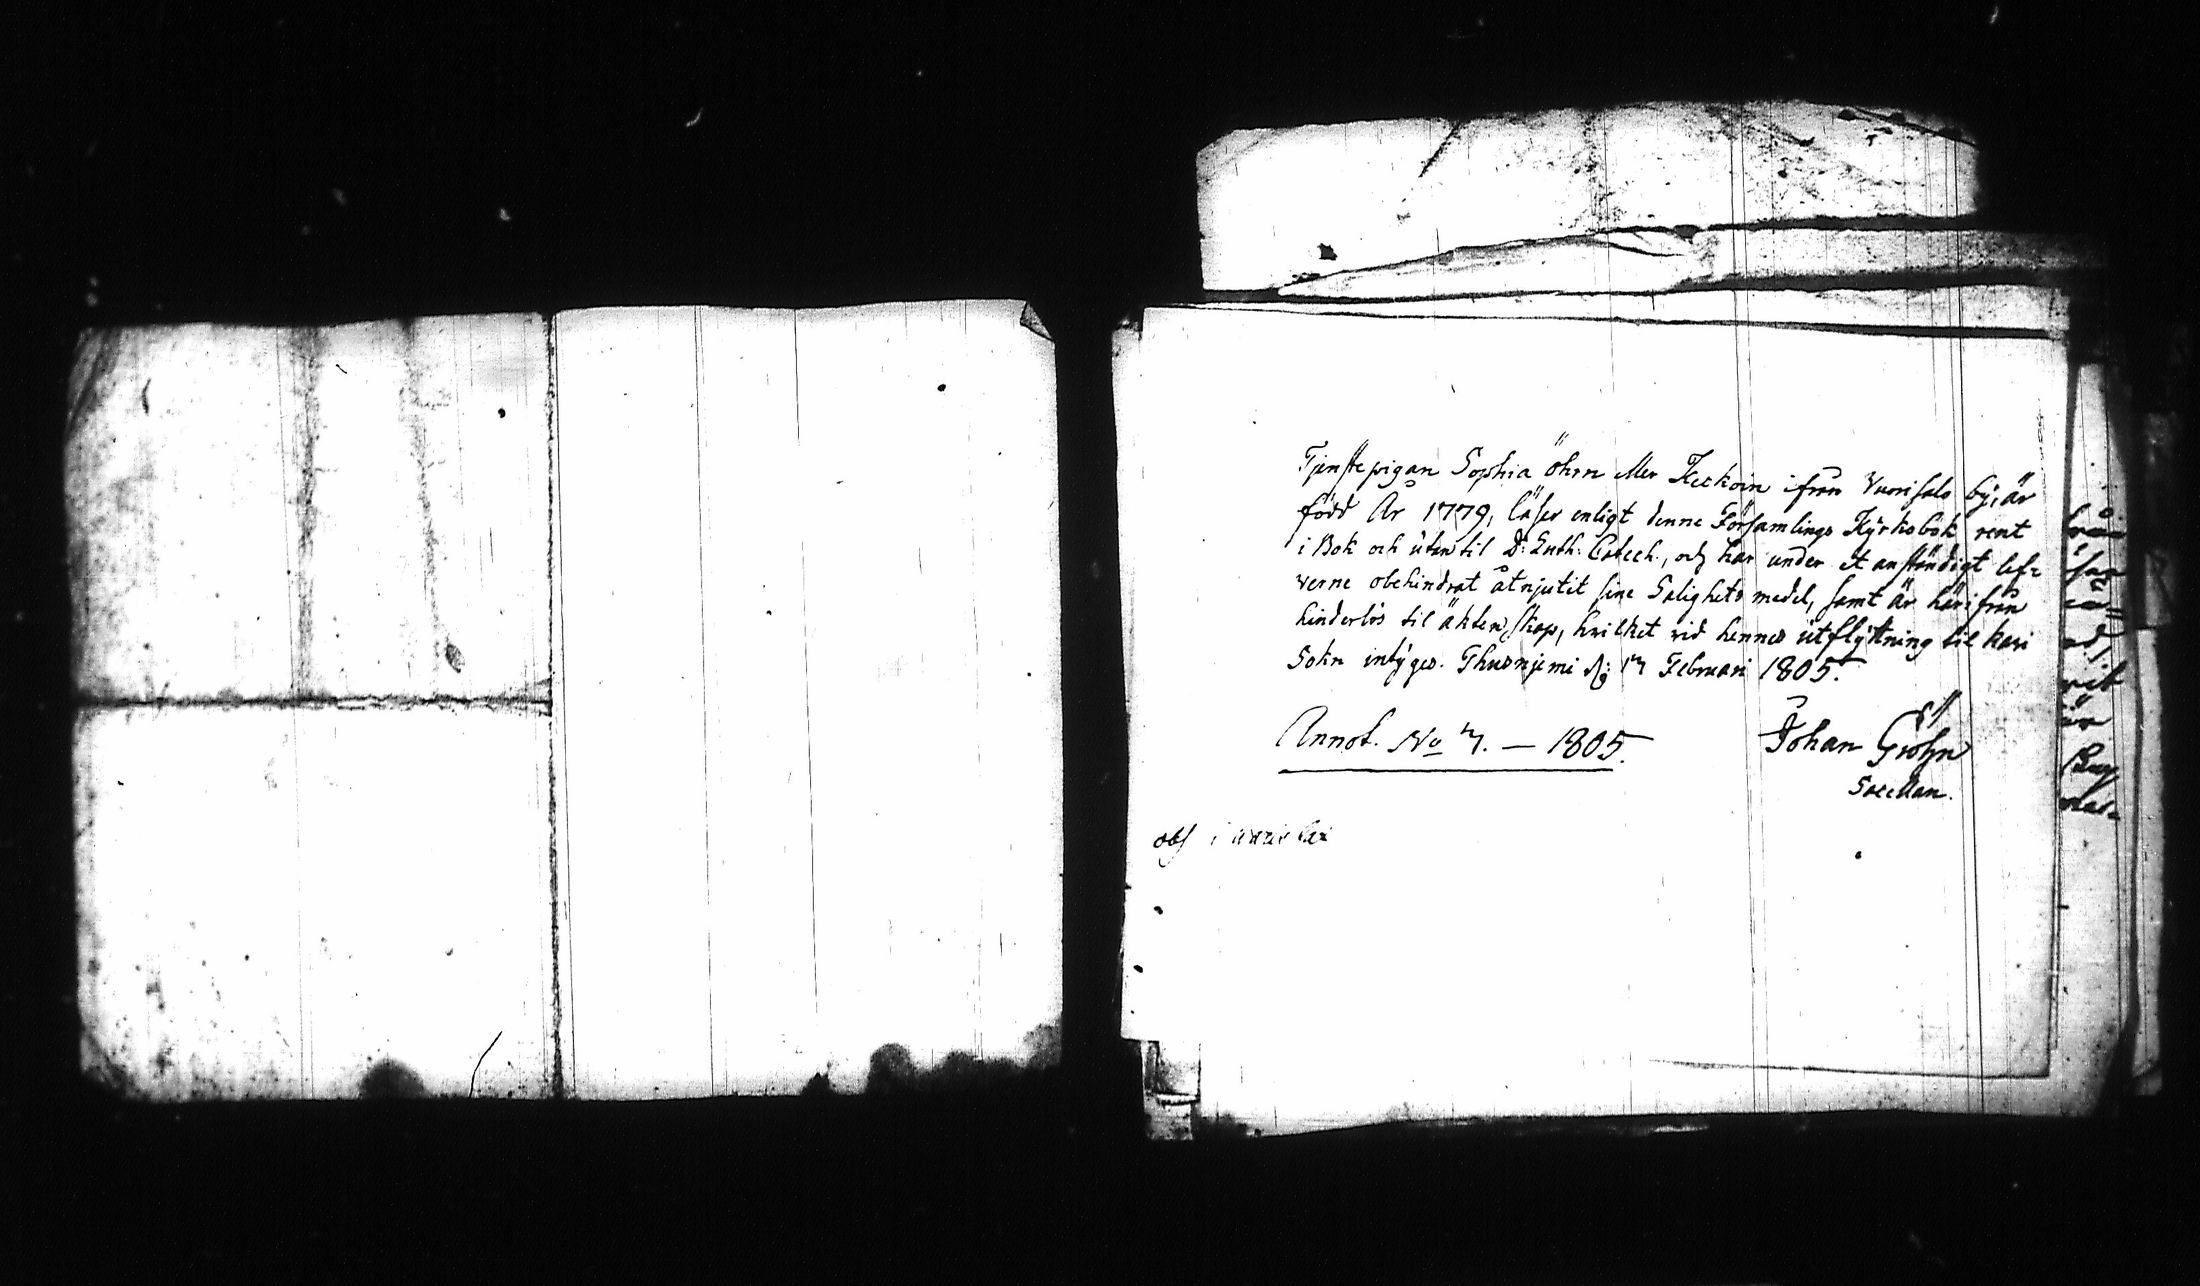 Tjenstepigan Sophia Öhrn eller Keckoin ifrån Vuorisalo by, är
född År 1779, läser enligt denne Församlings Kyrkobok rent
i Bok och utantil D: Luth: Catech:, och har under et anständigt lef-
verne obehindrat åtnjutit sine Salighets medel, samt är härifrån
hinderlös til äktenskap, hvilket vid hennes utflyttning til
Sokn intyges. Thusnjemi d: 17 Februari 1805.
Annot. No 7. — 1805.
Johan Gröhn
Sacellan.
obs i